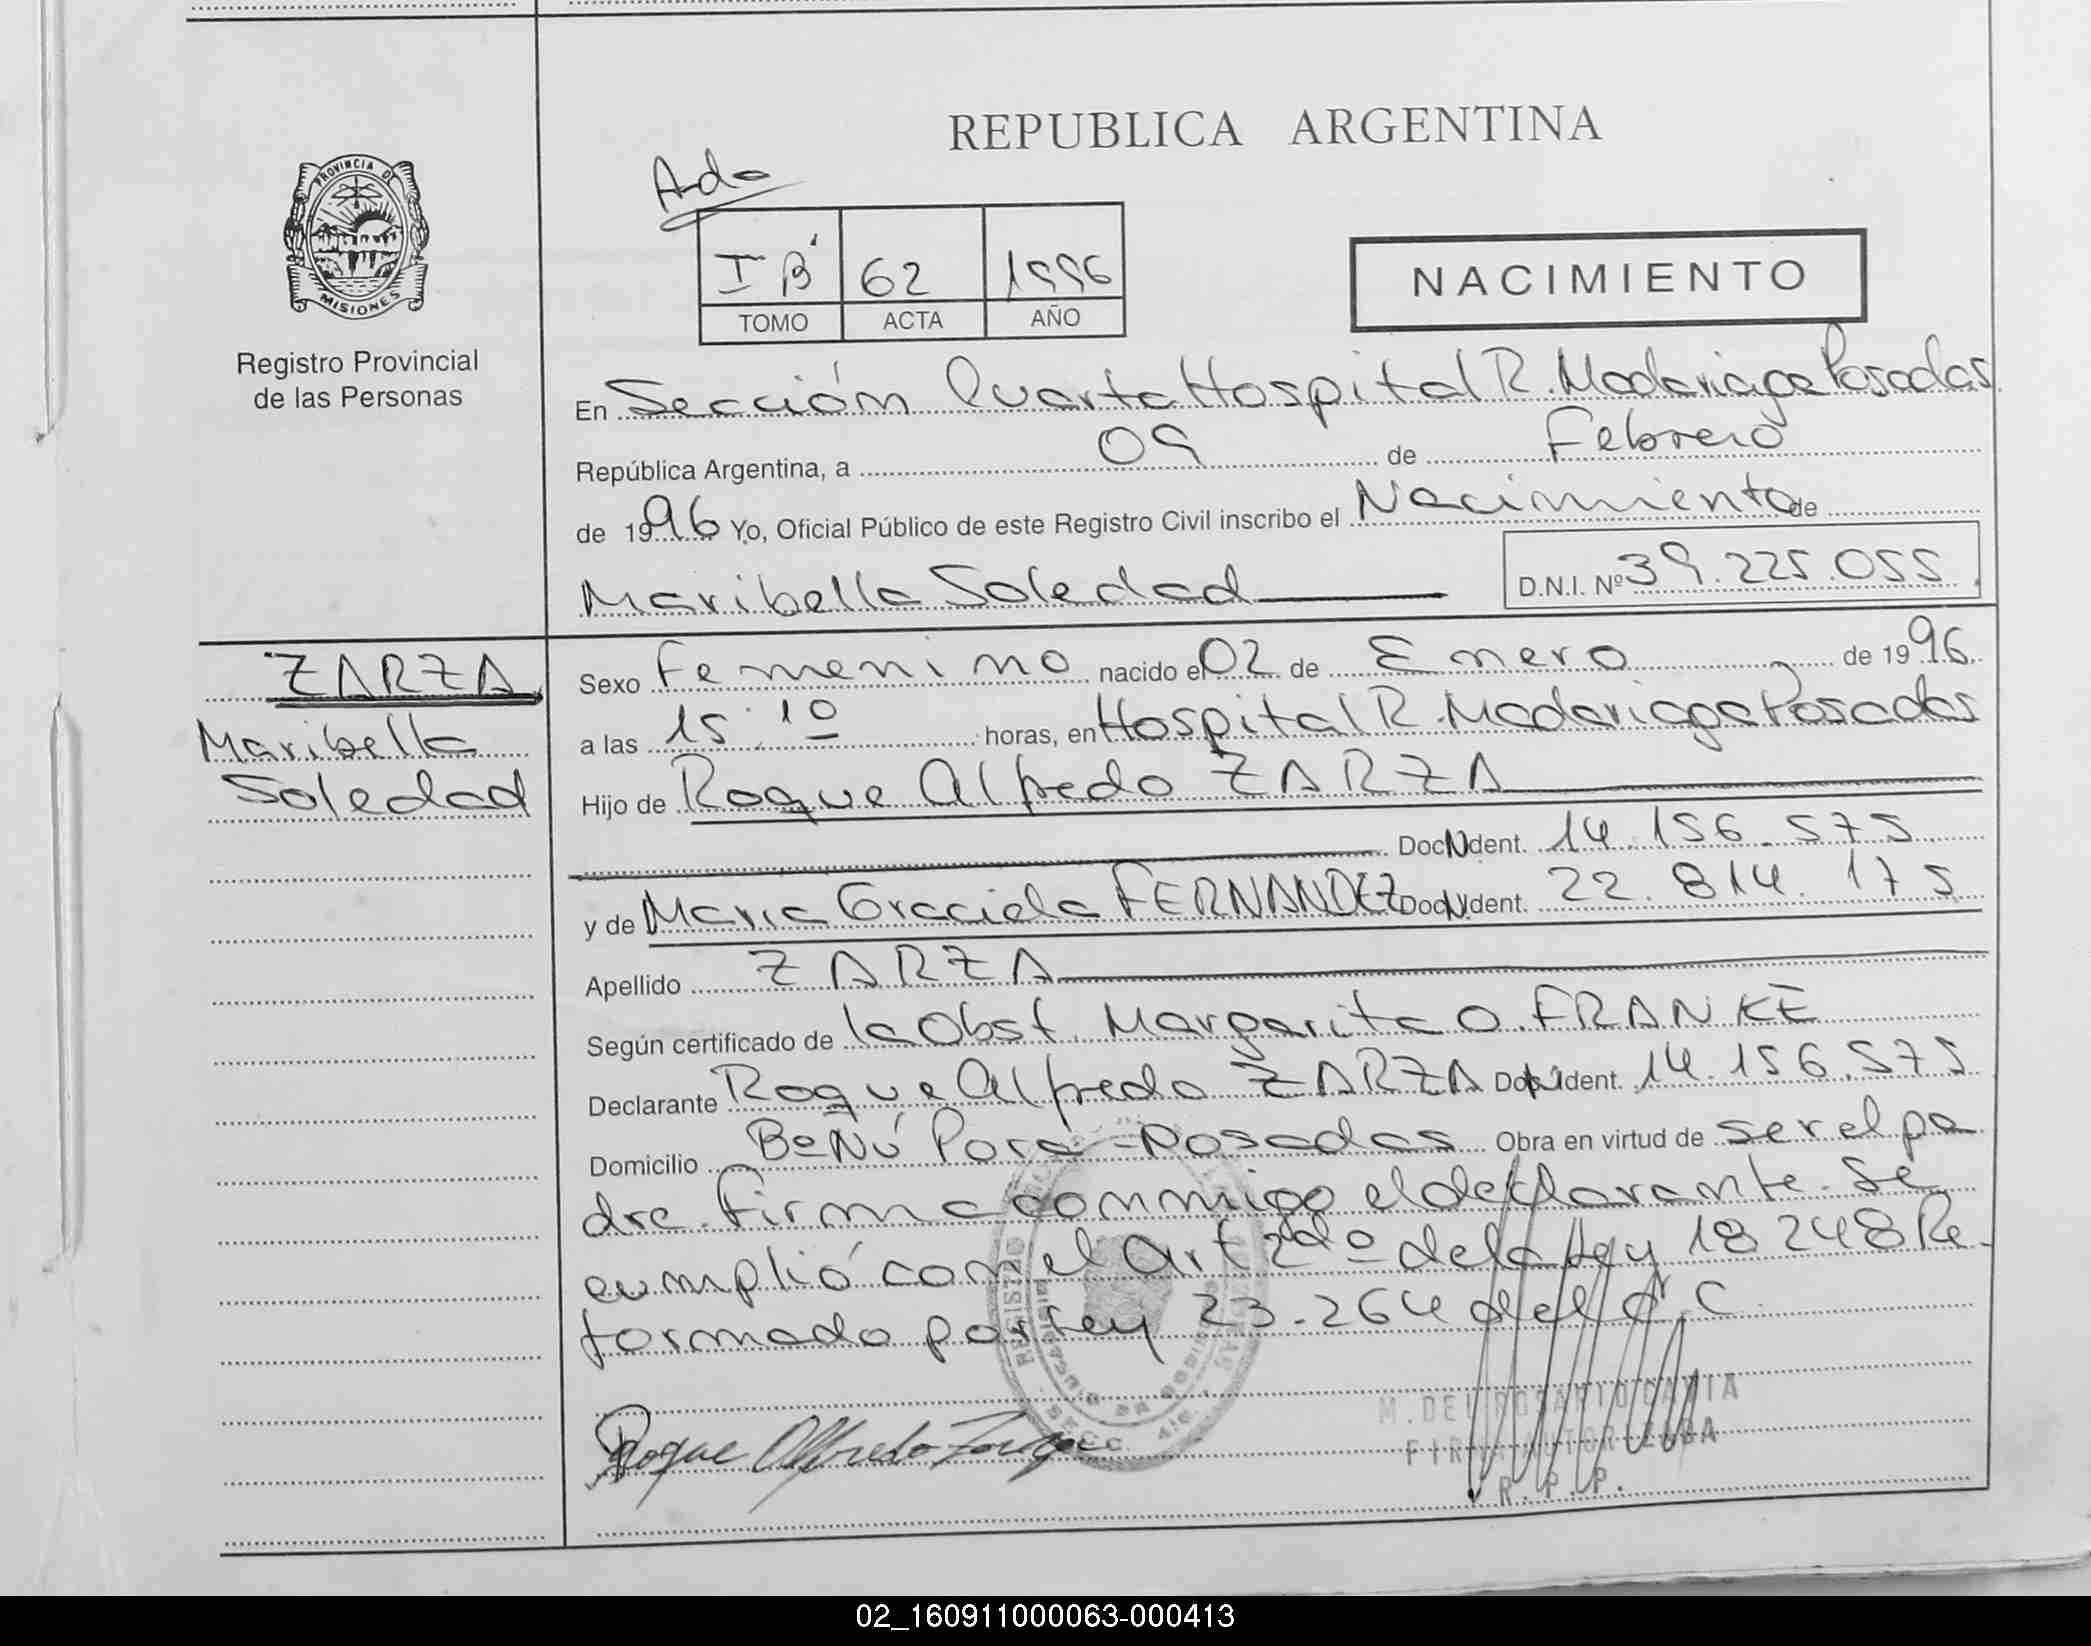 REPUBLICA ARGENTINA
Ada
PROVINCIA DE
MISIONES
Registro Provincial
de las Personas
I B' 62 1996
TOMO ACTA AÑO
NACIMIENTO
En Sección Quarta Hospital R. Madariaga Posadas
República Argentina, a 09 de Febrero
de 1996 Yo, Oficial Público de este Registro Civil inscribo el Nacimiento de
Maribella Soledad D.N.I. Nº 39.225.055
ZARZA
Maribella
Soledad
Sexo Femenino nacido el 02 de Enero de 1996
a las 15:10 horas, en Hospital R. Madariaga Posadas
Hijo de Roque Alfredo ZARZA
Doc. Ident. 14.156.575
y de Maria Graciela FERNANDEZ Doc. Ident. 22.814.175
Apellido ZARZA
Según certificado de la Obst. Margarita O. FRANKE
Declarante Roque Alfredo ZARZA Doc. Ident. 14.156.575
Domicilio Bº Ñú Porá - Posadas Obra en virtud de ser el pa
dre. Firma conmigo el declarante. Se
cumplió con el Art 2dº de la Ley 18248 Re-
formado por Ley 23.264 del C.C
Roque Alfredo Zarza
M. DEL ROSARIO
FIRMA AUTORIZADA
R. P. P.
02_160911000063-000413